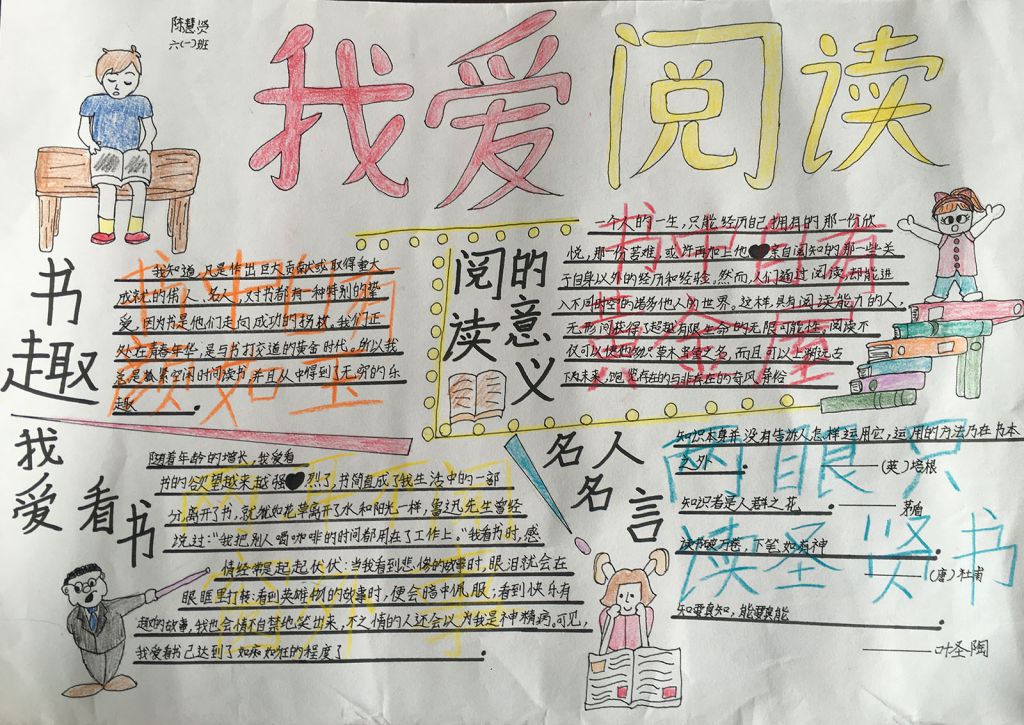 陈慧贤
六(一)班
我爱阅读
书趣
我知道,凡是作出巨大贡献或取得重大
成就的伟人、名人,对书都有一种特别的挚
爱,因为书是他们走向成功的扬枚。我们正
处在青春年华,是与书打交道的黄金时代。所以我
总是抓紧空闲时间读书并且从中得到了无穷的乐
趣。
颜如玉
阅读的意义
一个人的一生,只能经历自己拥有的那一份欣
悦,那一份苦难,或许再加上他亲自闻知的那一些关
于自身以外的经历和经验。然而,人们通过阅读,却能进
入不同时空的诸多他人的世界。这样,具有阅读能力的人,
无形间获得了超越有限生命的无限可能性。阅读不
仅可以使他多识草木虫鱼之名,而且可以上溯远古
下及未来,饱览存在的与非存在的奇风异俗
书中自有
黄金屋
我爱看书
随着年龄的增长,我爱看
书的欲望越来越强烈了,书简直成了我生活中的一部
分,离开了书,就犹如花草离开了水和阳光一样,鲁迅先生曾经
说过:“我把别人喝咖啡的时间都用在了工作上。”我看书时,感
情经常是起起伏伏:当我看到悲伤的故事时,眼泪就会在
眼眶里打转;看到英雄人物的故事时,便会暗中佩服;看到快乐有
趣的故事,我也会情不自禁地笑出来,不知情的人还会以为我是神精病。可见,
我爱看书已达到了如痴如狂的程度了。
两耳不闻
窗外事
名人名言
知识本身并没有告诉人怎样运用它,运用的方法乃在书本
之外。
——(英)培根
知识者是人群之花。
——茅盾
读书破万卷,下笔如有神。
——(唐)杜甫
知要真知,能要真能。
——叶圣陶
两眼只
读圣贤书